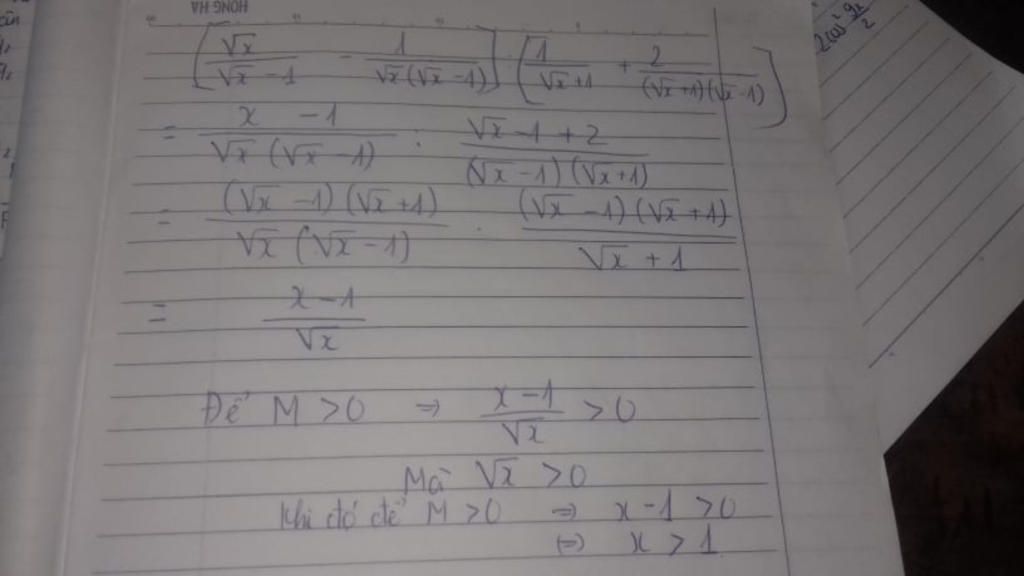 HONG HA
[√x/(√x - 1) - 1/(√x(√x - 1))] : [1/(√x + 1) + 2/((√x + 1)(√x - 1))]
= (x - 1)/(√x(√x - 1)) : (√x - 1 + 2)/((√x - 1)(√x + 1))
= ((√x - 1)(√x + 1))/(√x(√x - 1)) . ((√x - 1)(√x + 1))/(√x + 1)
= (x - 1)/√x
Để M > 0 => (x - 1)/√x > 0
Mà √x > 0
Khi đó để M > 0 => x - 1 > 0
<=> x > 1